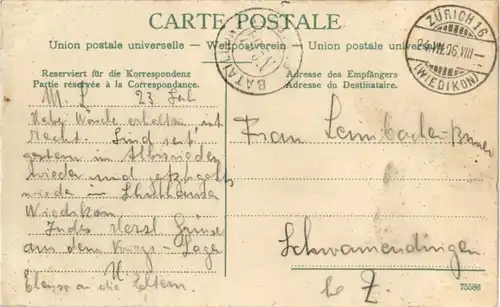 CARTE POSTALE
Union postale universelle — Weltpostverein — Union postale universelle
Reserviert für die Korrespondenz
Partie réservée à la Correspondance.
Adresse des Empfängers
Adresse du Destinataire.
ZÜRICH 16
VII.06.VIII
(WIEDIKON)
M. L. 23 Juli
erhalten, ist
Recht. Sind seit
gestern in Albisrieden
wieder und jetzt geht's
wieder in Schulhaus
Wiedikon.
Indes Herzl Grüsse
aus dem
H
Ebenso an die Eltern.
Frau
Schwamendingen
be Z.
75586